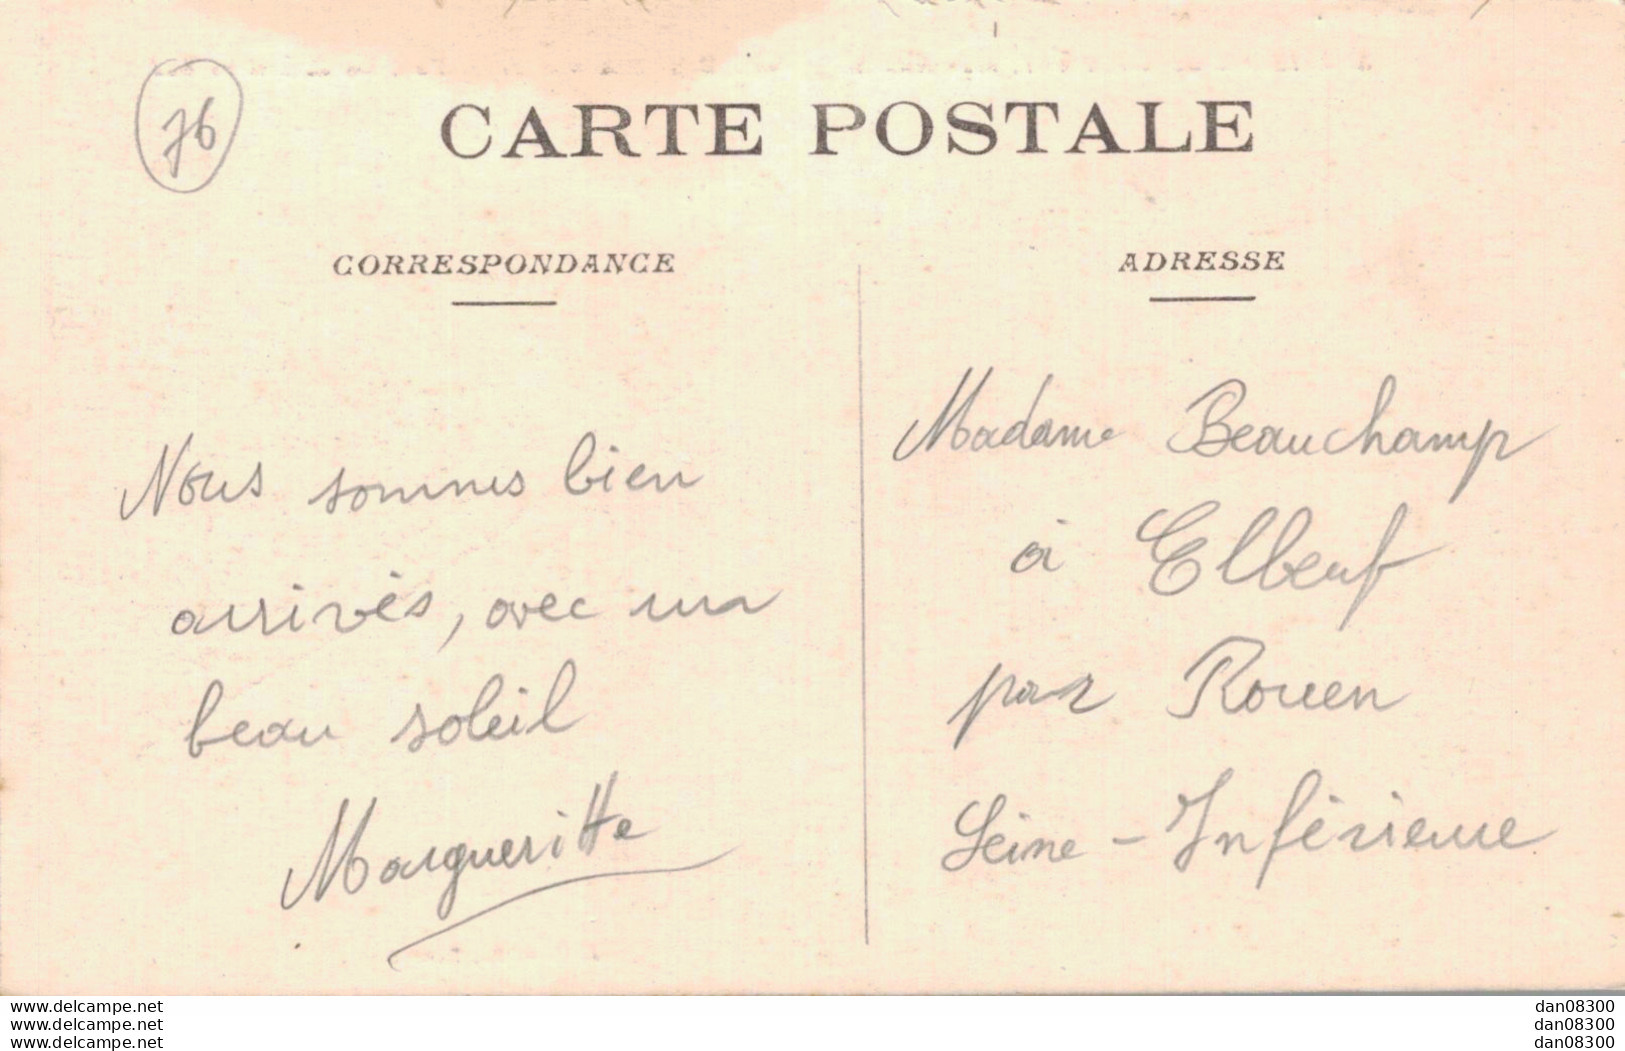 76
CARTE POSTALE
CORRESPONDANCE
Nous sommes bien
arrivés, avec un
beau soleil
Margueritte
ADRESSE
Madame Beauchamp
à Elbeuf
par Rouen
Seine-Inférieure
www.delcampe.net
www.delcampe.net
www.delcampe.net
dan08300
dan08300
dan08300